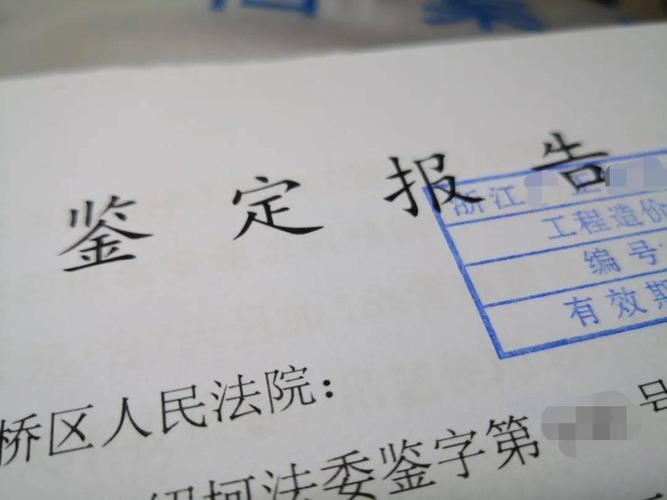 鉴定报告
浙江
工程造价
编号
有效期
桥区人民法院：
绍柯法委鉴字第 号